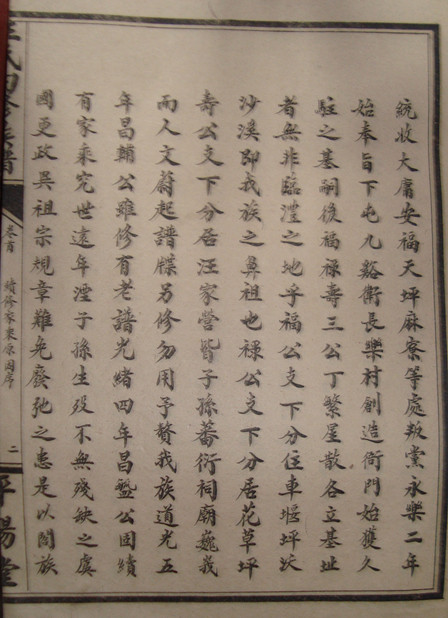 統收大庸安福天坪麻寮等處叛黨永樂二年
始奉旨下屯九谿衛長樂村創造衙門始獲久
駐之基嗣後福祿壽三公丁繁星散各立基址
者無非臨澧之地乎福公支下分住車堰坪沃
沙溪即我族之鼻祖也祿公支下分居花草坪
壽公支下分居汪家營皆子孫蕃衍祠廟巍峩
而人文蔚起譜牒另修勿用予贅我族道光五
年昌輔公雖修有老譜光緒四年昌盤公固續
有家乘究世遠年湮子孫生歿不無殘缺之虞
國更政異祖宗規章難免廢弛之患是以闔族
氏四修族譜
卷首
續修家乘原因序
二
平陽堂